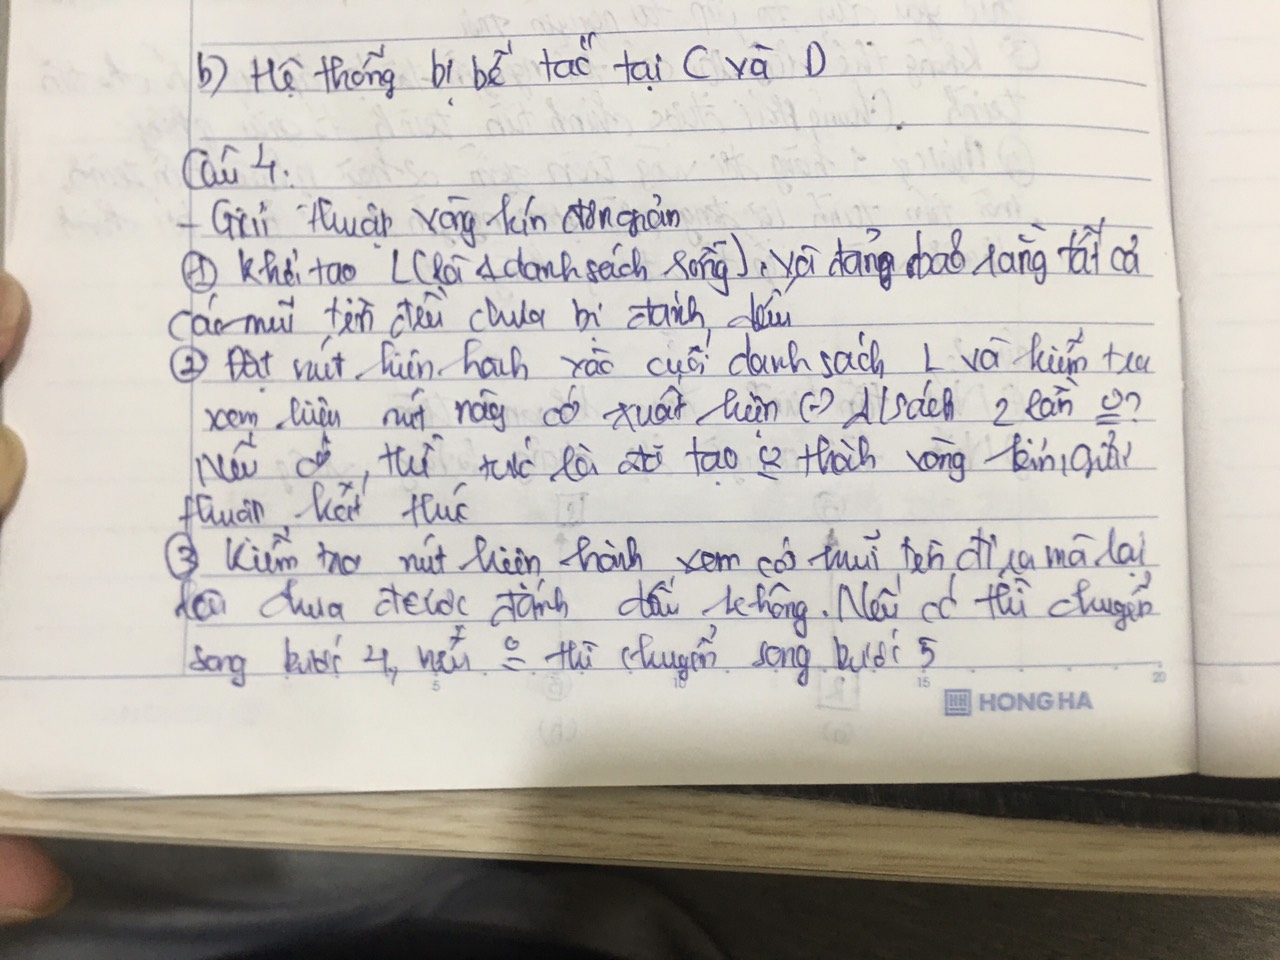 b) Hệ thống bị bế tắc tại C và D
Câu 4:
- Giải thuật vòng kín đơn giản
① Khởi tạo L (là 1 danh sách rỗng), và đảng bảo rằng tất cả
các mũi tên đều chưa bị đánh dấu
② Đặt nút hiện hành vào cuối danh sách L và kiểm tra
xem liệu nút này có xuất hiện (-) d/sách 2 lần
Nếu có, thì tức là đã tạo thành vòng kín, giải
thuật kết thúc
③ Kiểm tra nút hiện hành xem có mũi tên đi ra mà lại
chưa được đánh dấu không. Nếu có thì chuyển
sang bước 4, nếu thì chuyển sang bước 5
5 10 15 20
HH HONG HA